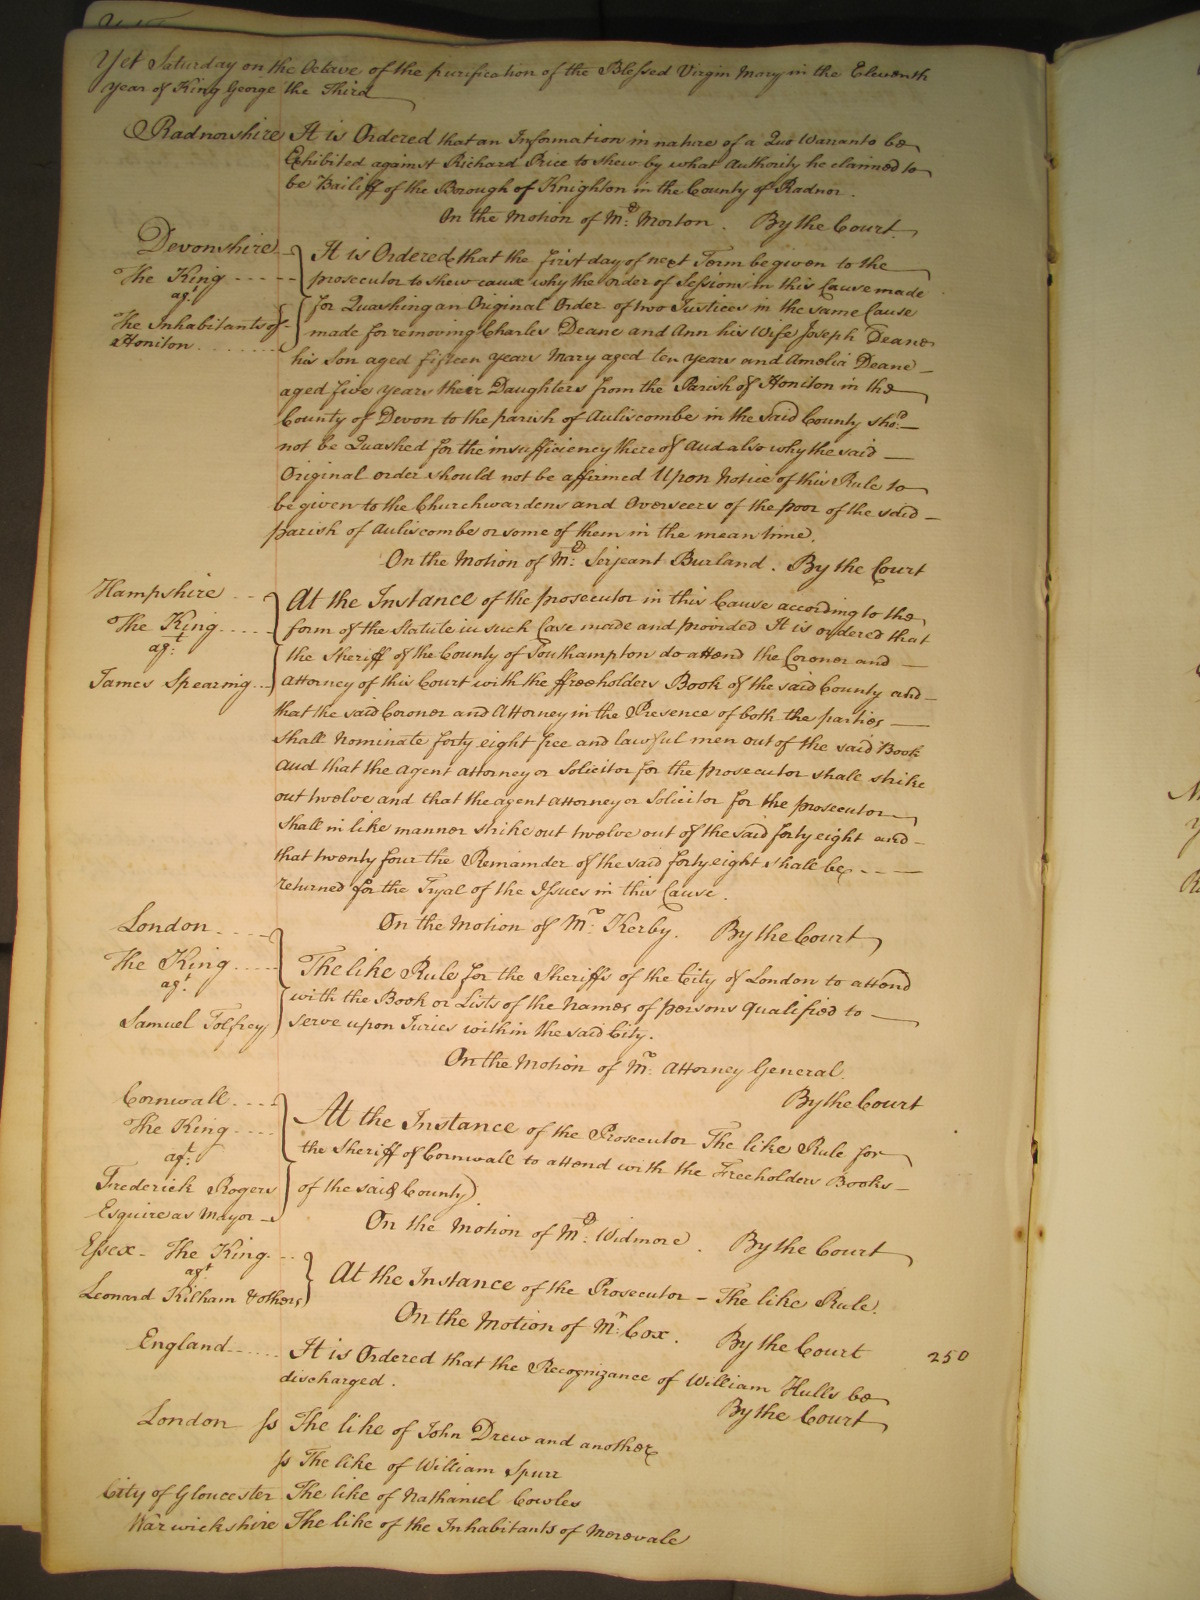 Yet Saturday on the Octave of the purification of the Blessed Virgin Mary in the Eleventh
Year of King George the Third
Radnorshire It is Ordered that an Information in nature of a Quo Warranto be
Exhibited against Richard Price to shew by what Authority he claimed to
be Bailiff of the Borough of Knighton in the County of Radnor.
On the Motion of Mr. Morton. By the Court.
Devonshire
The King
agt
The Inhabitants of
Honiton
It is Ordered that the first day of next Term be given to the
prosecutor to shew cause why the order of Sessions in this Cause made
for Quashing an Original Order of two Justices in the same Cause
made for removing Charles Deane and Ann his Wife Joseph Deane
his Son aged fifteen years Mary aged ten years and Amelia Deane
aged five years their Daughters from the Parish of Honiton in the
County of Devon to the parish of Auliscombe in the said County sho.d
not be Quashed for the insufficiency thereof And also why the said
Original order should not be affirmed Upon Notice of this Rule to
be given to the Churchwardens and Overseers of the poor of the said
parish of Auliscombe or some of them in the mean time.
On the Motion of Mr. Serjeant Burland. By the Court
Hampshire
The King
agt
James Spearing
At the Instance of the prosecutor in this Cause according to the
form of the Statute in such Case made and provided It is ordered that
the Sheriff of the County of Southampton do attend the Coroner and
Attorney of this Court with the ffreeholders Book of the said County and
that the said Coroner and Attorney in the Presence of both the parties
shall Nominate forty eight free and lawful men out of the said Book
And that the Agent Attorney or Solicitor for the prosecutor shall strike
out twelve and that the agent Attorney or Solicitor for the prosecutor
shall in like manner strike out twelve out of the said forty eight and
that twenty four the Remainder of the said forty eight shall be
returned for the Tryal of the Issues in this Cause.
On the Motion of Mr. Kerby. By the Court
London
The King
agt
Samuel Tolfrey
The like Rule for the Sheriffs of the City of London to attend
with the Book or Lists of the Names of persons qualified to
serve upon Juries within the said City.
On the Motion of Mr. Attorney General.
By the Court
Cornwall
The King
agt
Frederick Rogers
Esquire as Mayor
At the Instance of the Prosecutor The like Rule for
the Sheriff of Cornwall to attend with the Freeholders Books
of the said County.
On the Motion of Mr. Widmore. By the Court
Essex The King
agt
Leonard Kilham & others
At the Instance of the Prosecutor - The like Rule.
On the Motion of Mr. Cox. By the Court
England It is Ordered that the Recognizance of William Hulls be
discharged.
By the Court
250
London ss The like of John Drew and another
ss The like of William Spurr
City of Gloucester The like of Nathaniel Cowles
Warwickshire The like of the Inhabitants of Merevale